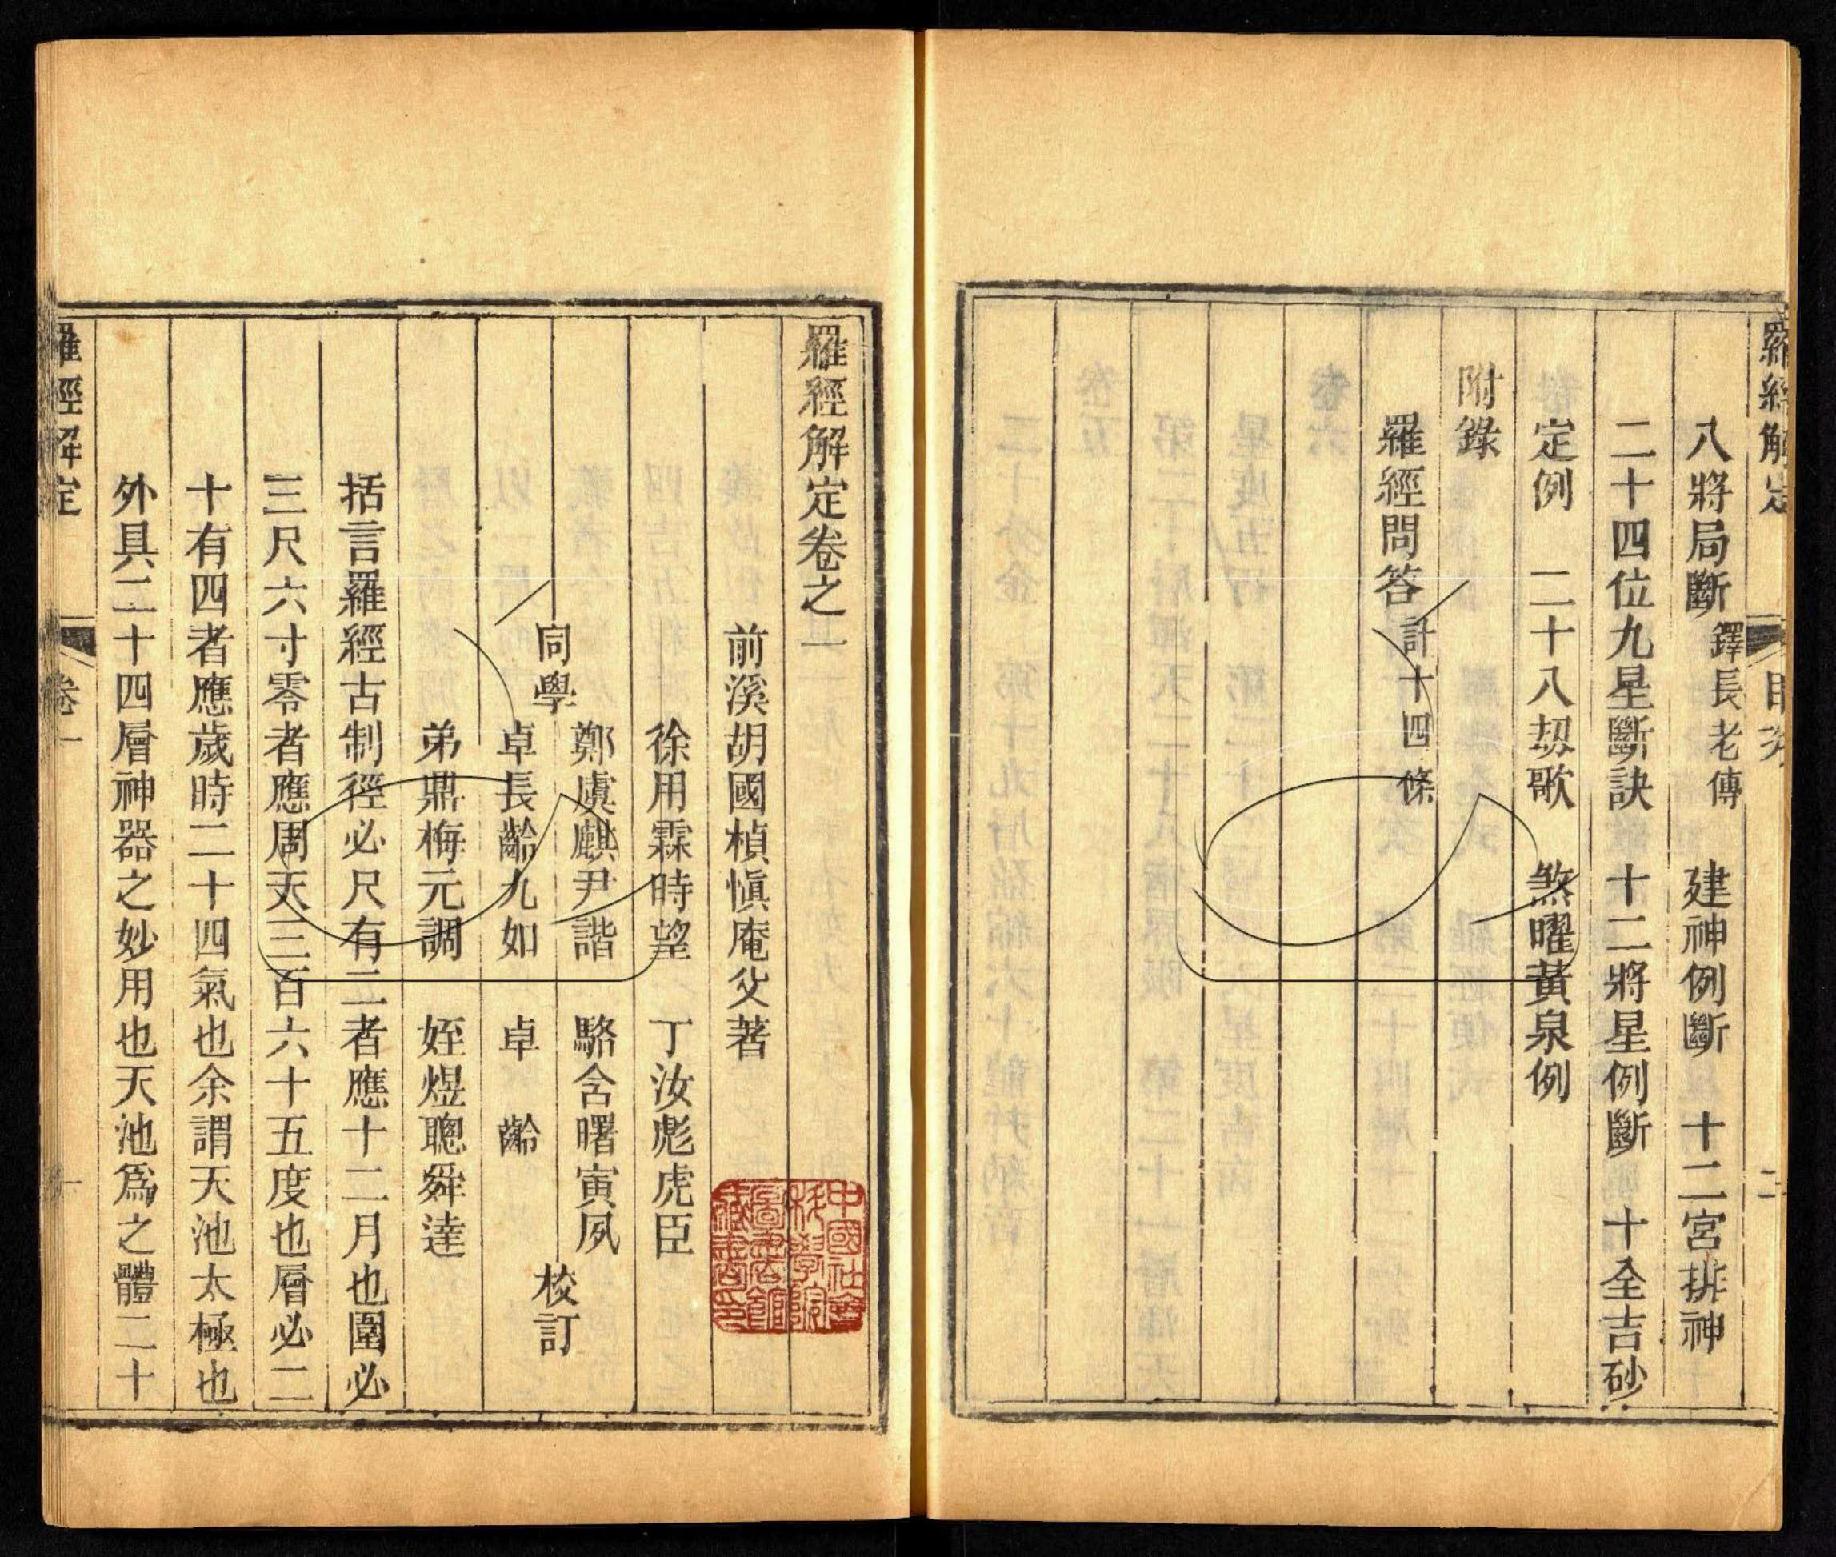 羅經解定
目次
二
八將局斷 鐸長老傳 建神例斷 十二宮排神
二十四位九星斷訣 十二將星例斷 十全吉砂
定例 二十八刼歌 煞曜黃泉例
附錄
羅經問答 計十四條
羅經解定卷之一
前溪胡國楨愼庵父著
徐用霖時望 丁汝彪虎臣
鄭虞麒尹諧 駱含曙寅夙
同學 校訂
卓長齡九如 卓齡
弟鼎梅元調 姪煜聰舜達
括言羅經古制徑必尺有二者應十二月也圍必
三尺六寸零者應周天三百六十五度也層必二
十有四者應歲時二十四氣也余謂天池太極也
外具二十四層神器之妙用也天池爲之體二十
羅經解定
卷一
一
中國社會科學院圖書館藏書印